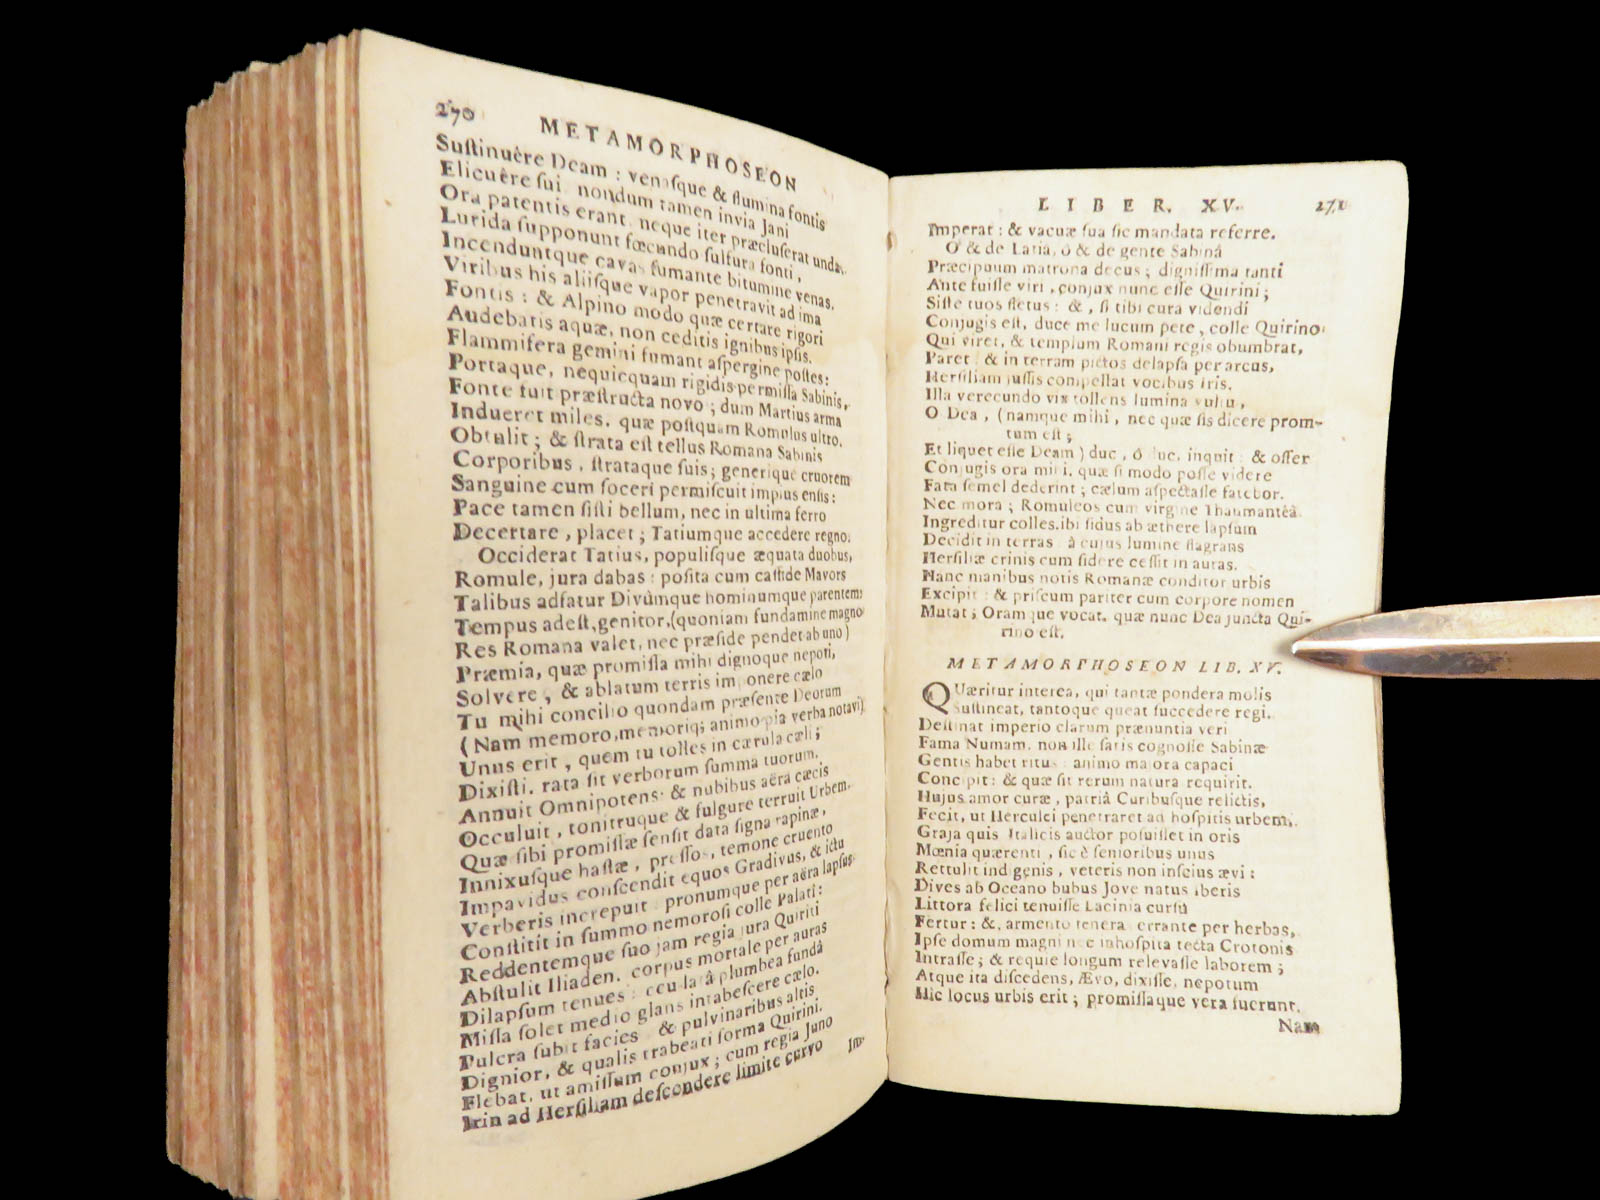 270
METAMORPHOSEON
Suſtinuêre Deam : venasque & flumina fontis
Elicuêre sui nondum tamen invia Jani
Ora patentis erant, neque iter præcluserat unda,
Lurida ſupponunt fœcundo ſulfura fonti,
Incenduntque cavas fumante bitumine venas.
Viribus his aliiſque vapor penetravit ad ima
Fontis : & Alpino modo quæ certare rigori
Audebatis aquæ, non ceditis ignibus ipſis.
Flammifera gemini fumant aſpergine poſtes:
Portaque, nequicquam rigidis permiſſa Sabinis,
Fonte fuit præſtructa novo ; dum Martius arma
Indueret miles. quæ poſtquam Romulus ultro.
Obtulit ; & ſtrata eſt tellus Romana Sabinis
Corporibus, ſtrataque ſuis; generique cruorem
Sanguine cum ſoceri permiſcuit impius enſis:
Pace tamen ſiſti bellum, nec in ultima ferro
Decertare, placet ; Tatiumque accedere regno.
Occiderat Tatius, populiſque æquata duobus,
Romule, jura dabas : poſita cum caſſide Mavors
Talibus adfatur Divûmque hominumque parentem:
Tempus adeſt, genitor, (quoniam fundamine magno
Res Romana valet, nec præſide pendet ab uno)
Præmia, quæ promiſſa mihi dignoque nepoti,
Solvere, & ablatum terris imponere cælo
Tu mihi concilio quondam præſente Deorum
(Nam memoro, memoriq; animo pia verba notavi)
Unus erit, quem tu tolles in cærula cæli;
Dixiſti. rata ſit verborum ſumma tuorum.
Annuit Omnipotens: & nubibus aëra cæcis
Occuluit, tonitruque & fulgure terruit Urbem.
Quæ ſibi promiſſæ ſenſit data ſigna rapinæ,
Innixuſque haſtæ, preſſos, temone cruento
Impavidus conſcendit equos Gradivus, & ictu
Verberis increpuit pronumque per aëra lapſus
Conſtitit in ſummo nemoroſi colle Palatî:
Reddentemque ſuo jam regia jura Quiriti
Abſtulit Iliaden. corpus mortale per auras
Dilapſum tenues : ceu lata plumbea fundâ
Miſſa ſolet medio glans intabeſcere cælo.
Pulcra ſubit facies & pulvinaribus altis
Dignior, & qualis trabeati forma Quirini.
Flebat, ut amiſſum conjux ; cum regia Juno
Irin ad Herſiliam deſcendere limite curvo
Im-
LIBER. XV.
271
Imperat : & vacuæ ſua ſic mandata referre.
O & de Latia, ô & de gente Sabinâ
Præcipuum matrona decus ; digniſſima tanti
Ante fuiſſe viri, conjux nunc eſſe Quirini;
Siſte tuos fletus : &, ſi tibi cura videndi
Conjugis eſt, duce me lucum pete, colle Quirino
Qui viret, & templum Romani regis obumbrat,
Paret & in terram pictos delapſa per arcus,
Herſiliam juſſis compellat vocibus Iris.
Illa verecundo vix tollens lumina vultu,
O Dea, (namque mihi, nec quæ ſis dicere prom-
tum eſt;
Et liquet eſſe Deam) duc, ô duc, inquit : & offer
Conjugis ora mihi, quæ ſi modo poſſe videre
Fata ſemel dederint ; cælum aſpectaſſe fatebor.
Nec mora ; Romuleos cum virgine Thaumanteâ
Ingreditur colles. ibi ſidus ab æthere lapſum
Decidit in terras à cujus lumine flagrans
Herſiliæ crinis cum ſidere ceſſit in auras.
Hanc manibus notis Romanæ conditor urbis
Excipit : & priſcum pariter cum corpore nomen
Mutat ; Oramque vocat. quæ nunc Dea juncta Qui-
rino eſt.
METAMORPHOSEON LIB. XV.
QUæritur interea, qui tantæ pondera molis
Suſtineat, tantoque queat ſuccedere regi.
Deſtinat imperio clarum prænuntia veri
Fama Numam. non ille ſatis cognoſſe Sabinæ
Gentis habet ritus : animo majora capaci
Concipit : & quæ ſit rerum natura requirit.
Hujus amor curæ, patriâ Curibuſque relictis,
Fecit, ut Herculei penetraret ad hoſpitis urbem.
Graja quis Italicis auctor poſuiſſet in oris
Mœnia quærenti, ſic è ſenioribus unus
Rettulit indigenis, veteris non inſcius ævi :
Dives ab Oceano bubus Jove natus Iberis
Littora felici tenuiſſe Lacinia curſu
Fertur : &, armento tenera errante per herbas,
Ipſe domum magni nec inhoſpita tecta Crotonis
Intraſſe ; & requie longum relevaſſe laborem ;
Atque ita diſcedens, Ævo, dixiſſe, nepotum
Hic locus urbis erit ; promiſſaque vera fuerunt.
Nam